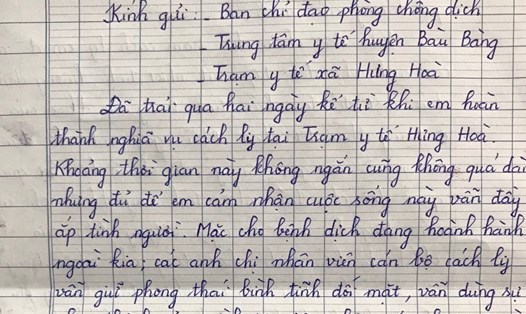 Kính gửi: - Ban chỉ đạo phòng chống dịch
- Trung tâm y tế huyện Bàu Bàng
- Trạm y tế xã Hưng Hoà
Đã trải qua hai ngày kể từ khi em hoàn
thành nghĩa vụ cách ly tại Trạm y tế Hưng Hoà.
Khoảng thời gian này không ngắn cũng không quá dài
nhưng đủ để em cảm nhận cuộc sống này vẫn đầy
ắp tình người. Mặc cho bệnh dịch đang hoành hành
ngoài kia; các anh chị nhân viên cán bộ cách ly
vẫn giữ phong thái bình tĩnh đối mặt, vẫn dùng sự